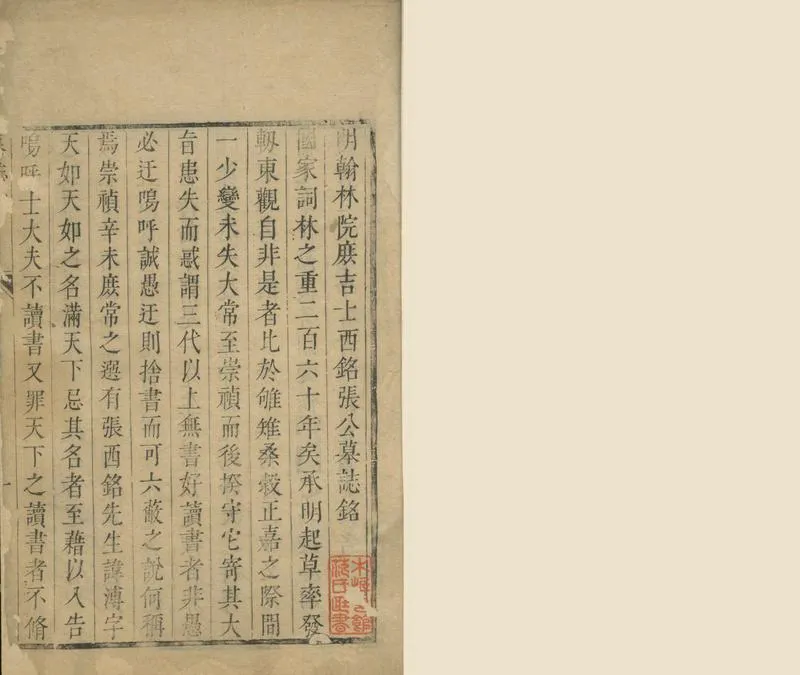 明翰林院庶吉士西銘張公墓誌銘
國家詞林之重二百六十年矣承明起草率發
軔東觀自非是者比於雊雉桑穀正嘉之際間
一少變未失大常至崇禎而後揆守它寄其大
旨患失而惑謂三代以上無書好讀書者非愚
必迂嗚呼誠愚迂則捨書而可六蔽之說何稱
焉崇禎辛未庶常之選有張西銘先生諱溥字
天如天如之名滿天下忌其名者至藉以入告
嗚呼士大夫不讀書又罪天下之讀書者不脩